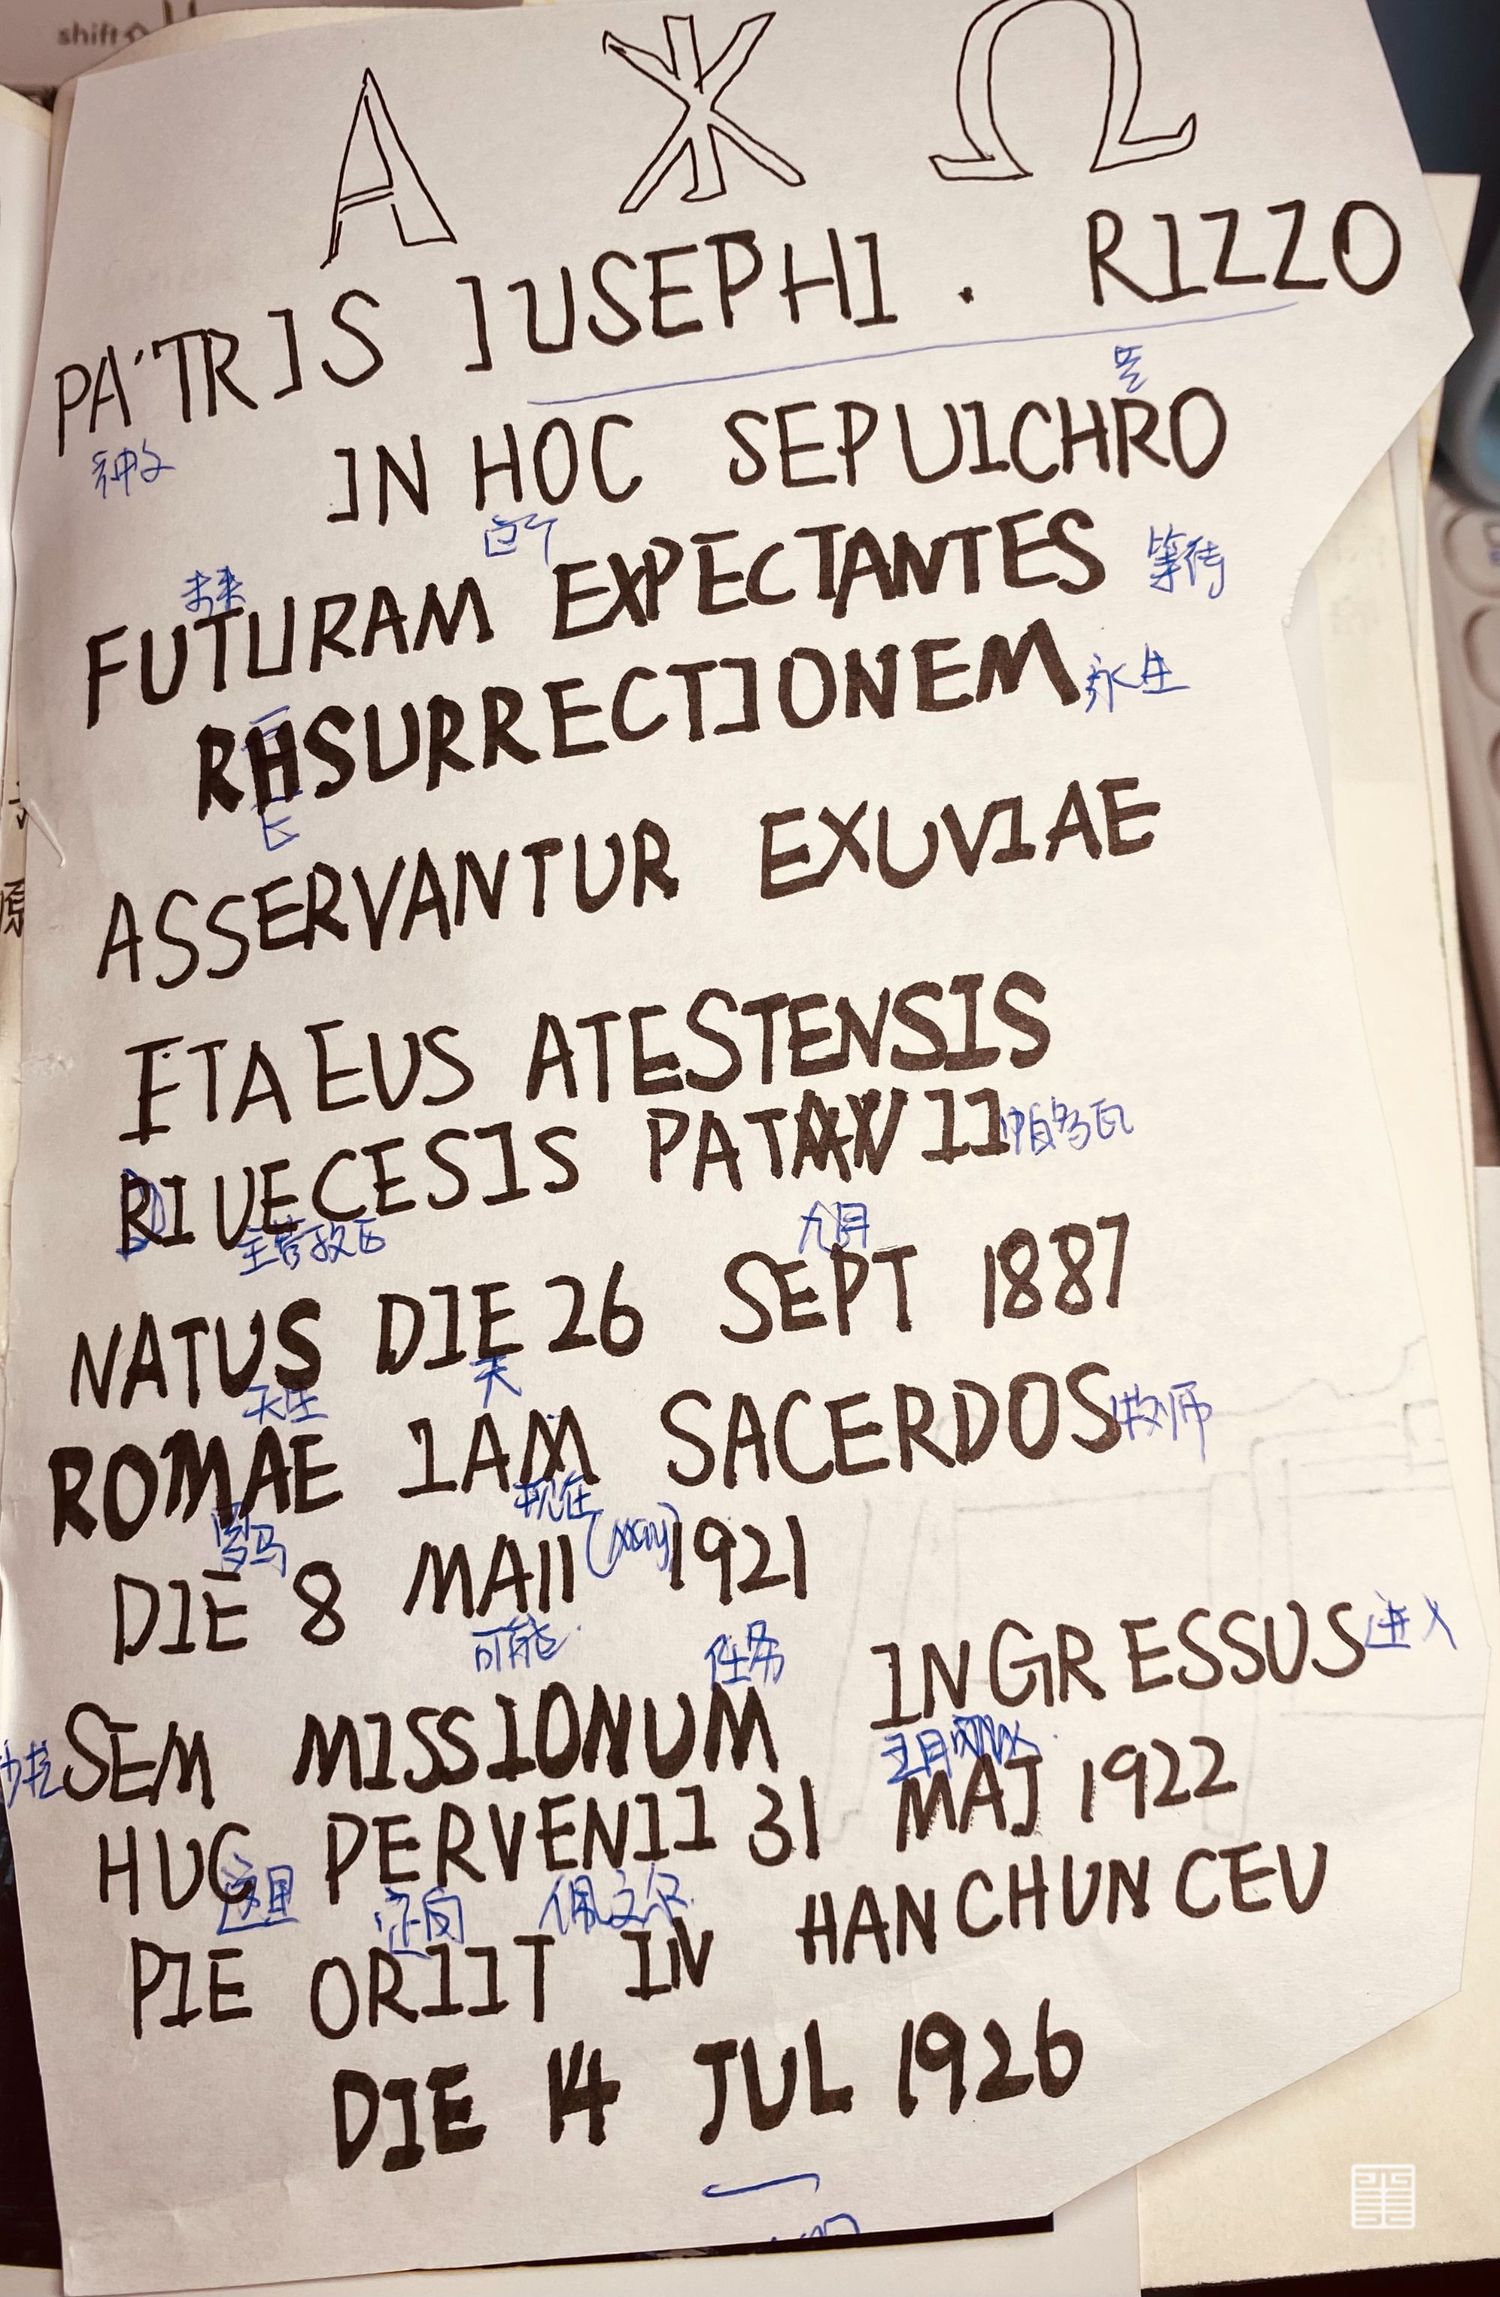 shift
A Ω
PA'TRIS IUSEPHI . RIZZO
神父
IN HOC SEPUICHRO
这个
未来
FUTURAM EXPECTANTES 等待
RHSURRECTIONEM 永生
E
ASSERVANTUR EXUVIAE
ETAEUS ATESTENSIS
BIUECESIS PATAAVII 帕多瓦
主管教区
九月
NATUS DIE 26 SEPT 1887
天生 天
ROMAE IAM SACERDOS 牧师
罗马 现在
DIE 8 MAII (may) 1921
可能 任务
SEM MISSIONUM INGRESSUS 进入
五月
HUC PERVENII 31 MAJ 1922
这里 定向 佩文尔
PIE ORIIT IN HANCHUNCEU
DIE 14 JUL 1926